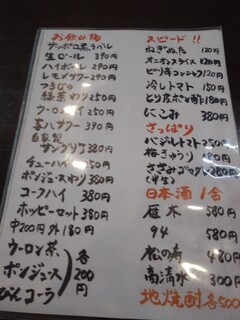 お飲み物
サッポロ黒ラベル
生ビール 390円
ハイボール 390円
レモンサワー 290円
緑茶わり 250円
ウーロンハイ 250円
自家製
サングリア 380円
チューハイ 250円
ポンジュースわり 380円
コークハイ 380円
ホッピーセット 380円
中200円 外180円
ウーロン茶
ポンジュース
びんコーラ
各200円
スピード!!
ねぎぬた 120円
オニオンスライス 120円
ピリ辛コンニャク 120円
冷しトマト 150円
とり皮ポン酢 180円
にこみ 380円
さっぱり
バジルトマト 250円
梅きゅうり 180円
日本酒 1合
雁木 580円
94 580円
松の寿 480円
高清水 300円
地焼酎 各500